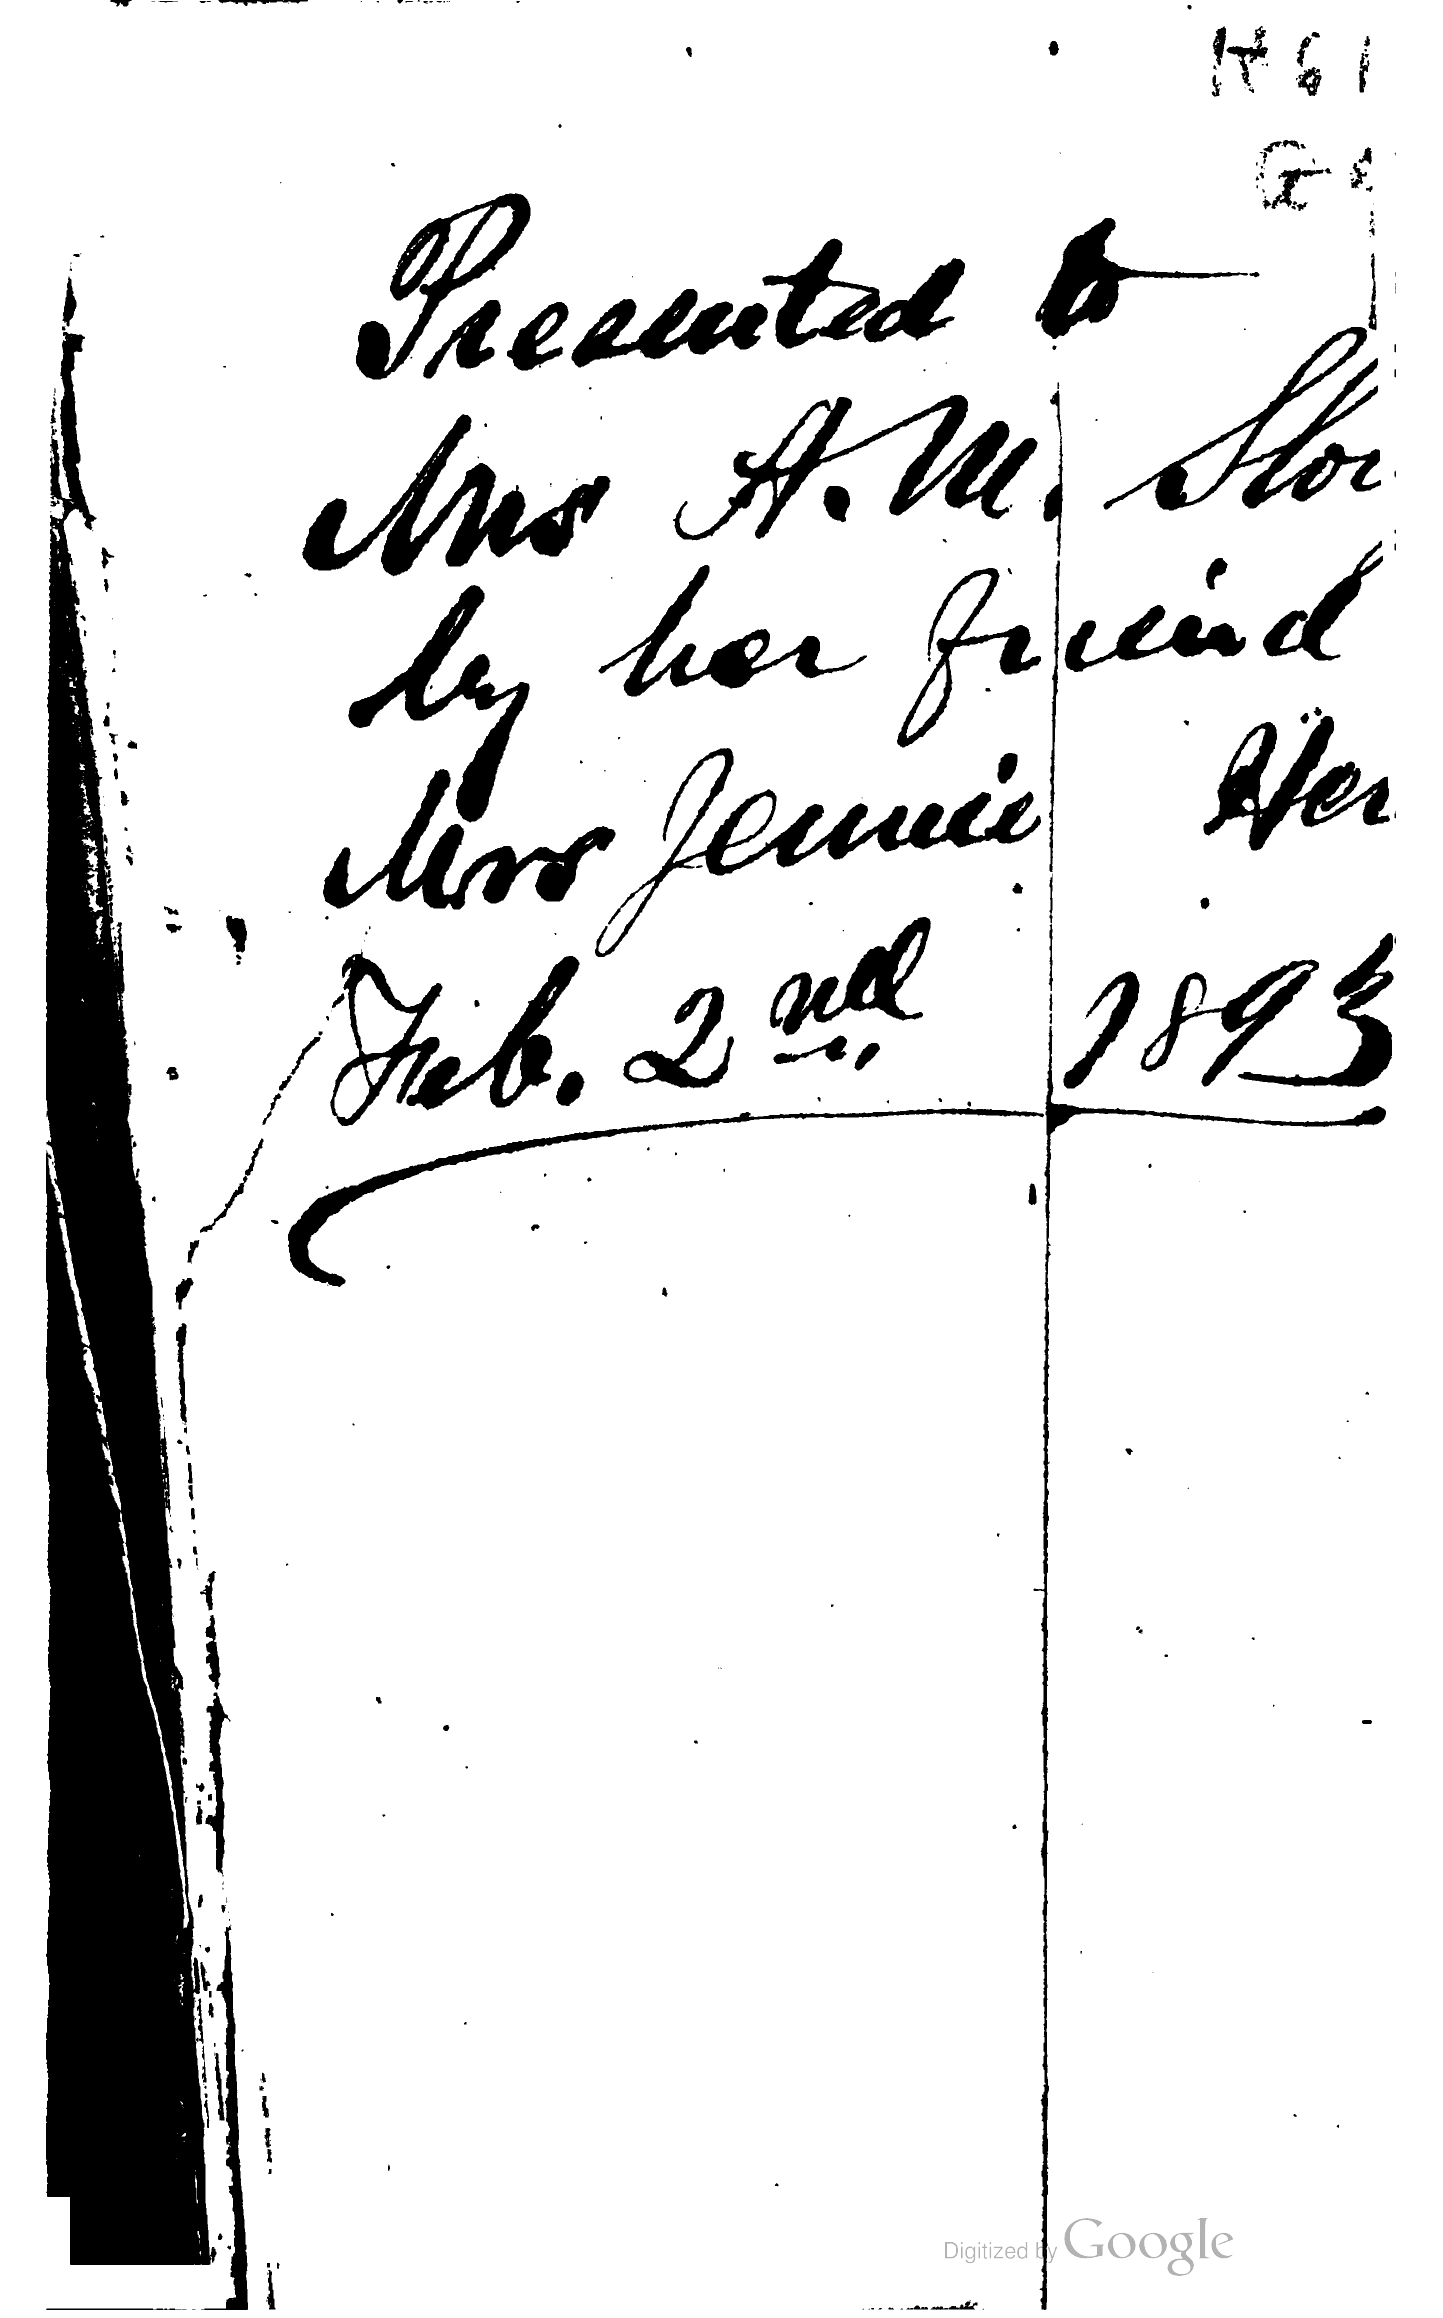 H61
Presented to
Mrs A. M.
by her friend
Mrs Jennie
Feb. 2nd 1893
Digitized by Google